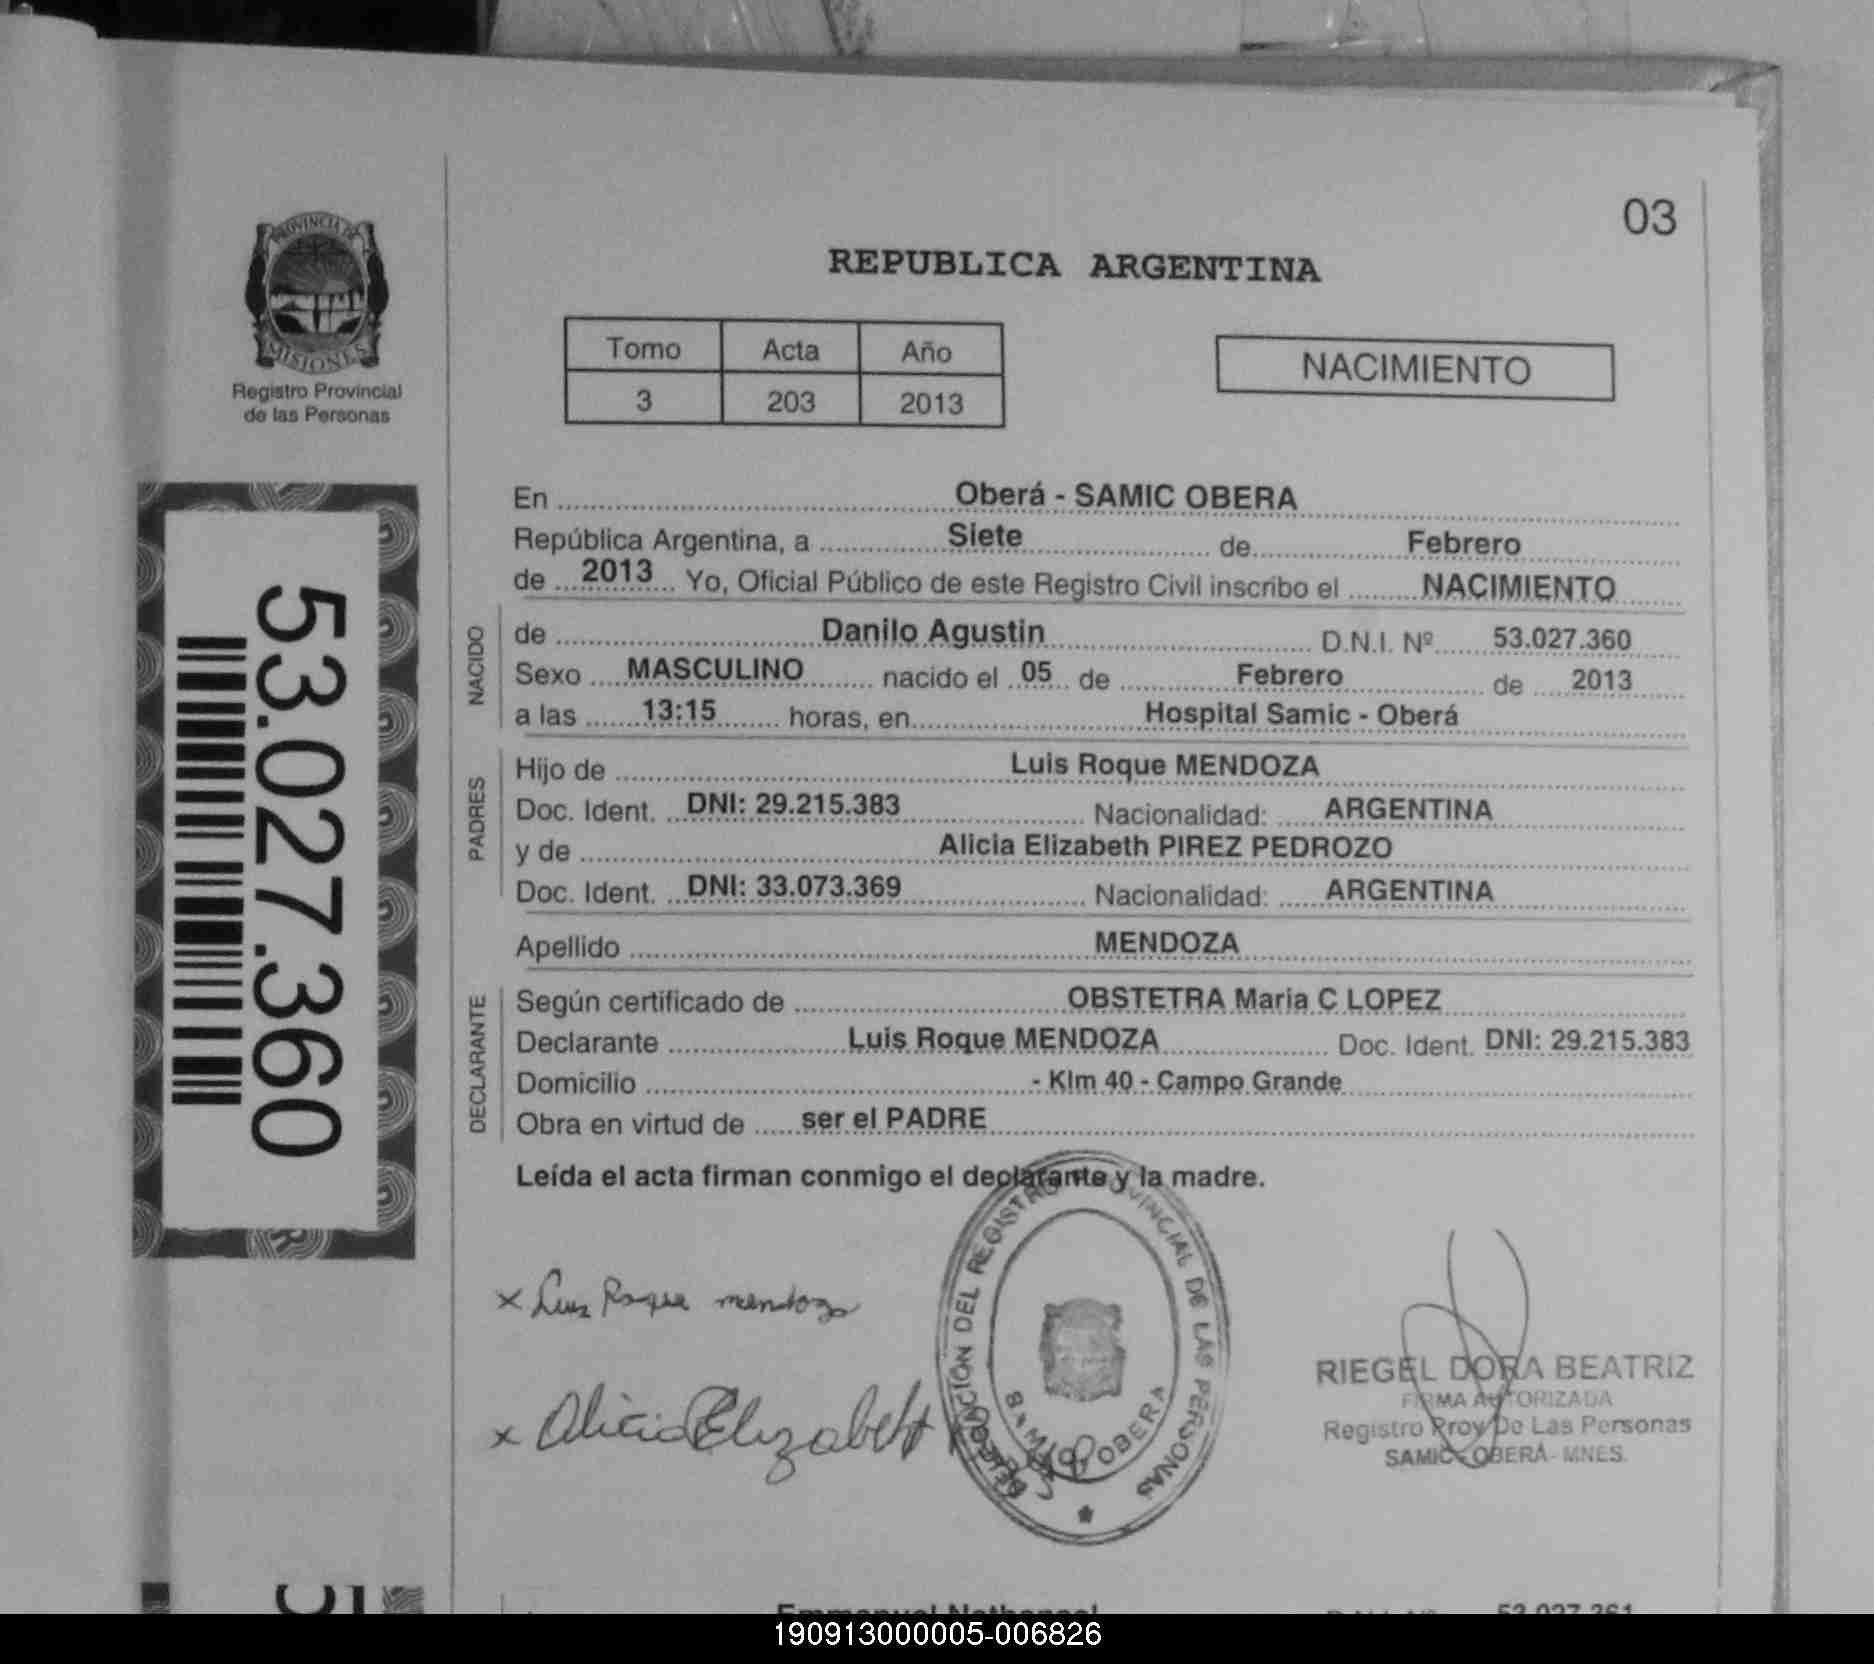 03
REPUBLICA ARGENTINA
PROVINCIA DE
MISIONES
Registro Provincial
de las Personas
Tomo Acta Año
3 203 2013
NACIMIENTO
53.027.360
En Oberá - SAMIC OBERA
República Argentina, a Siete de Febrero
de 2013 Yo, Oficial Público de este Registro Civil inscribo el NACIMIENTO
NACIDO
de Danilo Agustin D.N.I. Nº 53.027.360
Sexo MASCULINO nacido el 05 de Febrero de 2013
a las 13:15 horas, en Hospital Samic - Oberá
PADRES
Hijo de Luis Roque MENDOZA
Doc. Ident. DNI: 29.215.383 Nacionalidad: ARGENTINA
y de Alicia Elizabeth PIREZ PEDROZO
Doc. Ident. DNI: 33.073.369 Nacionalidad: ARGENTINA
Apellido MENDOZA
DECLARANTE
Según certificado de OBSTETRA Maria C LOPEZ
Declarante Luis Roque MENDOZA Doc. Ident. DNI: 29.215.383
Domicilio - Klm 40 - Campo Grande
Obra en virtud de ser el PADRE
Leída el acta firman conmigo el declarante y la madre.
x Luis Roque mendoza
x Alicia Elizabeth
DELEGACIÓN DEL REGISTRO PROVINCIAL DE LAS PERSONAS
SAMIC OBERA
RIEGEL DORA BEATRIZ
FIRMA AUTORIZADA
Registro Prov De Las Personas
SAMIC - OBERÁ - MNES.
Emmanuel Nathanael 53.027.361
190913000005-006826